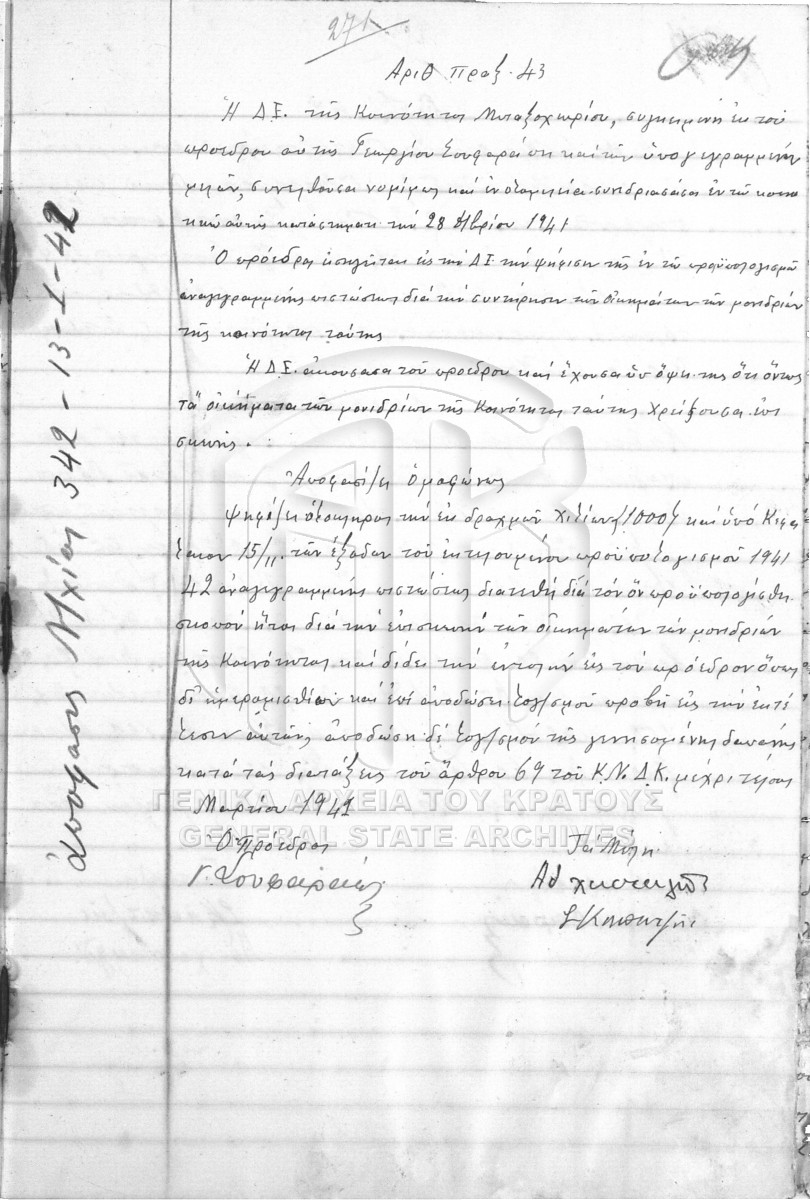 271
Αριθ πραξ. 43
Ἡ Δ.Ε. τῆς Κοινότητος Μεταξοχωρίου, συγκειμένη ἐκ τοῦ
προέδρου αὐτῆς Γεωργίου Σουφαρά και τῶν ὑπογεγραμμένων
μελῶν, συνελθοῦσα νομίμως καί ἐν ὁλομελεία συνεδριάσασα ἐν τῶ κοινο
τικῶ αὐτῆς καταστήματι τήν 28 Νβρίου 1941
Ὁ πρόεδρος εἰσηγεῖται εἰς τήν Δ.Ε. τήν ψήφισιν τῆς ἐν τῶ προϋπολογισμῶ
ἀναγεγραμμένης πιστώσεως διά τήν συντήρησιν τῶν οἰκημάτων τῶν μονιδρίων
τῆς κοινότητος ταύτης
Ἡ Δ.Ε. ἀκούσασα τοῦ προέδρου καί ἔχουσα ὑπ ὄψει της ὅτι ὄντως
τά οἰκήματα τῶν μονιδρίων τῆς Κοινότητος ταύτης χρείζουσι ἐπι
σκευῆς.
Ἀποφασίζει ὁμοφώνως
Ψηφίζει ὁλόκληρος τήν ἐκ δραχμῶν χιλίων (1000) καί ὑπό Κεφά
λαιον 15/11. τῶν ἐξόδων τοῦ ἐκτελουμένου προϋπολογισμοῦ 1941
42 ἀναγεγραμμένης πιστώσεως διατεθῆ διά τόν ὅν προϋπολογίσθη
σκοπόν ἤτοι διά τήν ἐπισκευήν τῶν οἰκημάτων τῶν μονιδρίων
τῆς Κοινότητος καί δίδει τήν ἐντολήν εἰς τόν πρόεδρον ὅπως
δι ἡμερομισθίων καί ἐπί ἀποδώσει λογ/σμοῦ προβῆ εἰς τήν ἐκτέ
λεσιν αὐτῶν, ἀποδώση δέ λογ/σμόν τῆς γενησομένης δαπάνης
κατά τάς διατάξεις τοῦ ἄρθρου 69 τοῦ Κ.Ν.Δ.Κ. μέχρι τέλους
Μαρτίου 1941
Ὁ Πρόεδρος
Τά Μέλη
ἀπόφασις Νχίας 342 - 13-1-42
ΓΕΝΙΚΑ ΑΡΧΕΙΑ ΤΟΥ ΚΡΑΤΟΥΣ
GENERAL STATE ARCHIVES